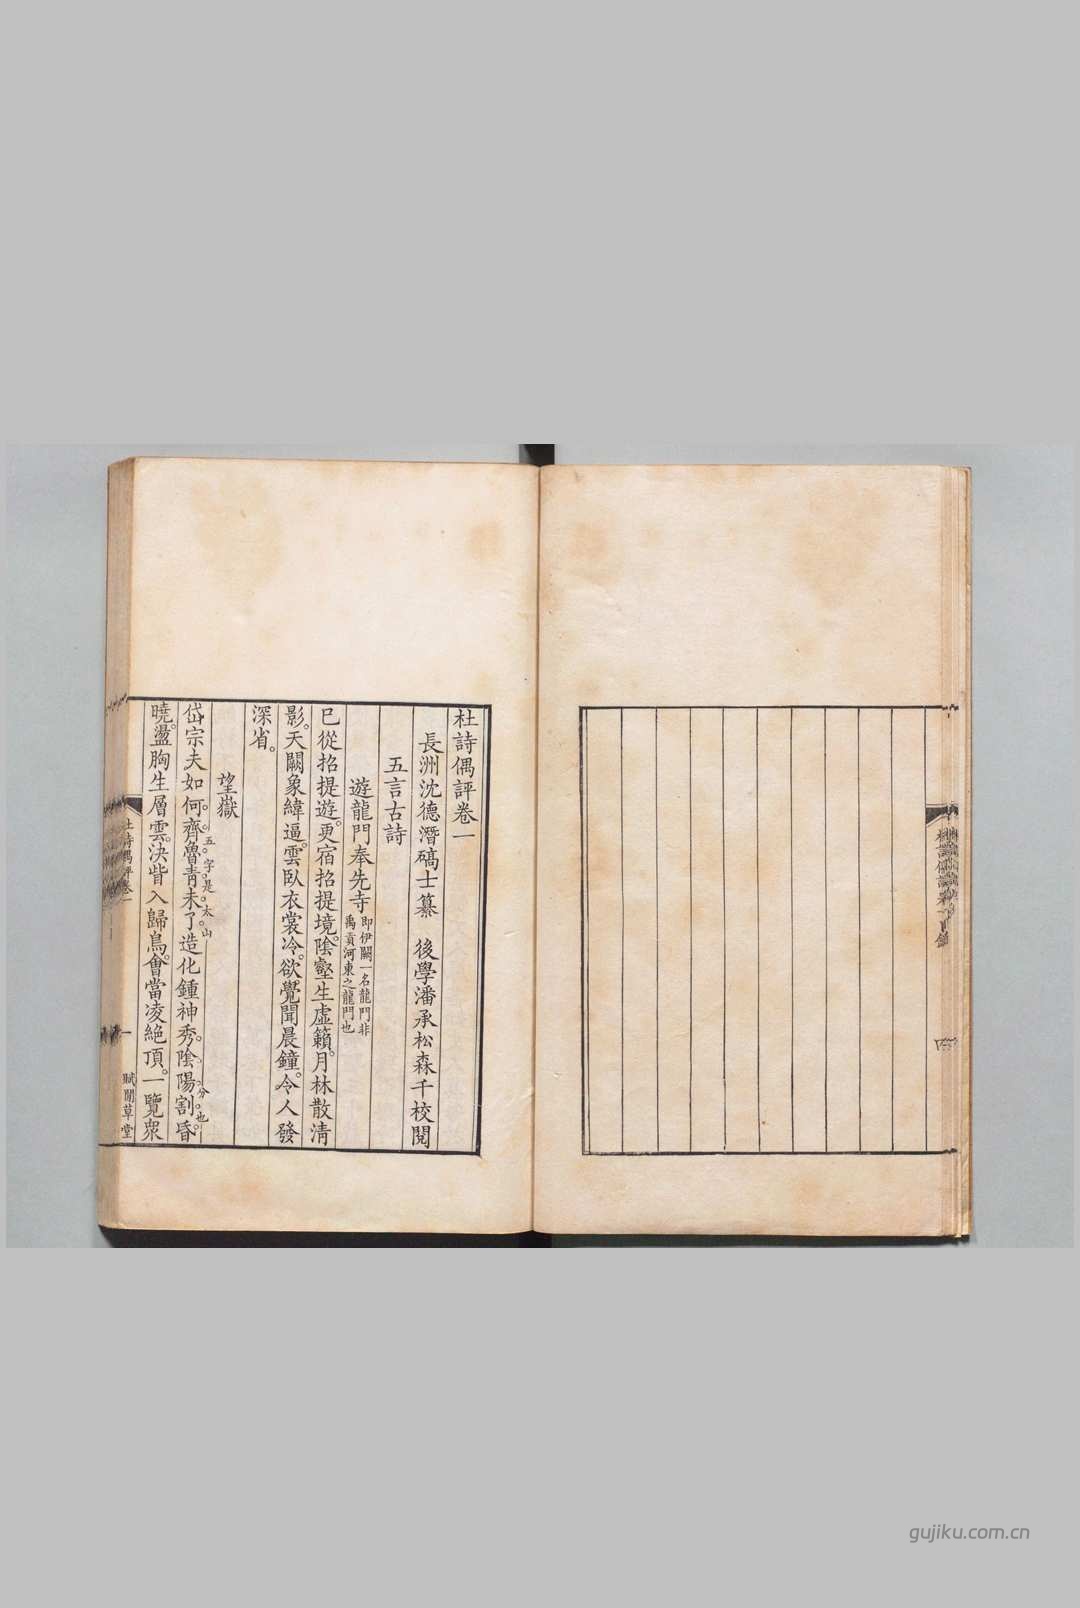 杜詩偶評卷一
長洲沈德潛碻士纂　後學潘承松森千校閱
五言古詩
遊龍門奉先寺
即伊闕一名龍門非
禹貢河東之龍門也
已從招提遊。更宿招提境。陰壑生虛籟。月林散清
影。天闕象緯逼。雲臥衣裳冷。欲覺聞晨鐘。令人發
深省。
望嶽
岱宗夫如何。齊魯青未了。造化鍾神秀。陰陽割昏
五字是太山
分也
曉。盪胸生層雲。決眥入歸鳥。會當凌絕頂。一覽衆
杜詩偶評卷一
一
賦閒草堂
gujiku.com.cn